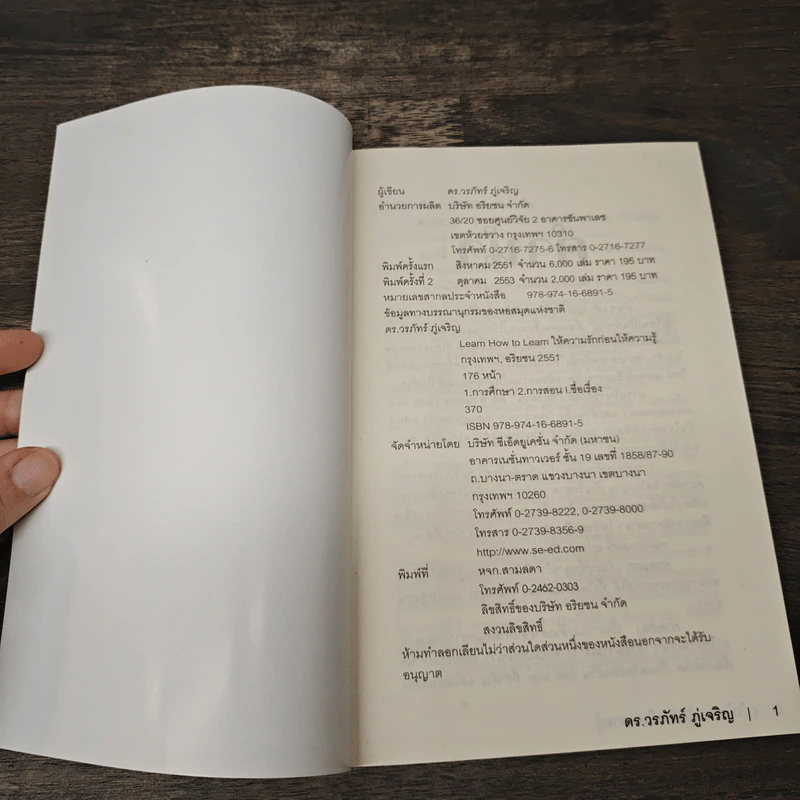 ผู้เขียน ดร.วรภัทร์ ภู่เจริญ
อำนวยการผลิต บริษัท อริยชน จำกัด
36/20 ซอยศูนย์วิจัย 2 อาคารชันพาเลซ
เขตห้วยขวาง กรุงเทพฯ 10310
โทรศัพท์ 0-2716-7275-6 โทรสาร 0-2716-7277
พิมพ์ครั้งแรก สิงหาคม 2551 จำนวน 6,000 เล่ม ราคา 195 บาท
พิมพ์ครั้งที่ 2 ตุลาคม 2553 จำนวน 2,000 เล่ม ราคา 195 บาท
หมายเลขสากลประจำหนังสือ 978-974-16-6891-5
ข้อมูลทางบรรณานุกรมของหอสมุดแห่งชาติ
ดร.วรภัทร์ ภู่เจริญ
Learn How to Learn ให้ความรักก่อนให้ความรู้
กรุงเทพฯ, อริยชน 2551
176 หน้า
1.การศึกษา 2.การสอน I.ชื่อเรื่อง
370
ISBN 978-974-16-6891-5
จัดจำหน่ายโดย บริษัท ซีเอ็ดยูเคชั่น จำกัด (มหาชน)
อาคารเนชั่นทาวเวอร์ ชั้น 19 เลขที่ 1858/87-90
ถ.บางนา-ตราด แขวงบางนา เขตบางนา
กรุงเทพฯ 10260
โทรศัพท์ 0-2739-8222, 0-2739-8000
โทรสาร 0-2739-8356-9
http://www.se-ed.com
พิมพ์ที่ หจก.สามลดา
โทรศัพท์ 0-2462-0303
ลิขสิทธิ์ของบริษัท อริยชน จำกัด
สงวนลิขสิทธิ์
ห้ามทำลอกเลียนไม่ว่าส่วนใดส่วนหนึ่งของหนังสือนอกจากจะได้รับ
อนุญาต
ดร.วรภัทร์ ภู่เจริญ | 1